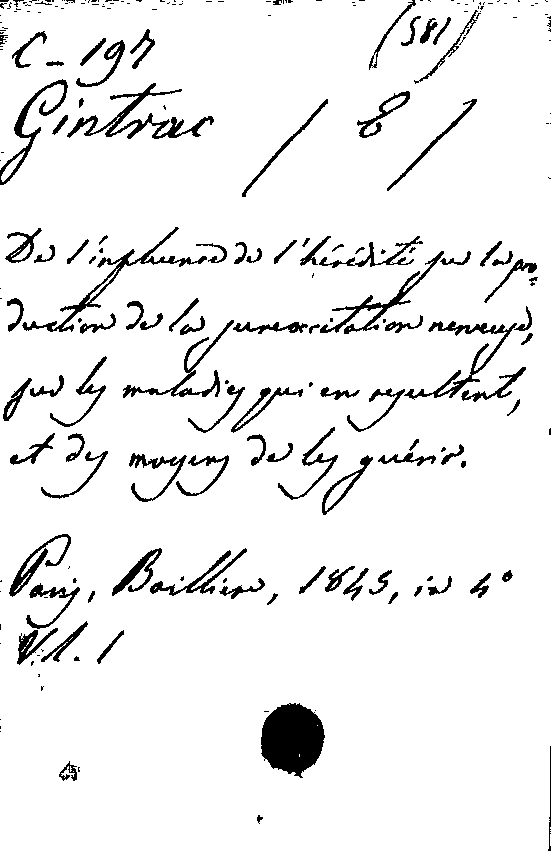 C-197 (581)
Gintrac / E /
De l'influence de l'hérédité sur la pro=
duction de la surexcitation nerveuse,
sur les maladies qui en resultent,
et des moyens de les guérir.
Paris, Baillière, 1845, in 4°
V.l. 1